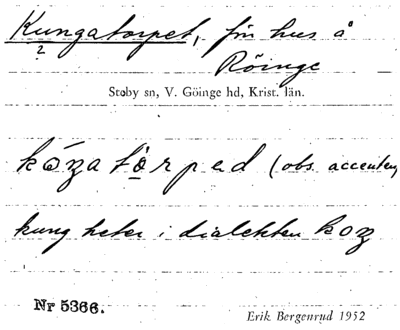 Kungatorpet, för hus å
2
Röinge
Stoby sn, V. Göinge hd, Krist. län.
kóŋatö̀rpəd (obs. accenten)
kung heter i dialekten koŋ
Nr 5366.
Erik Bergenrud 1952